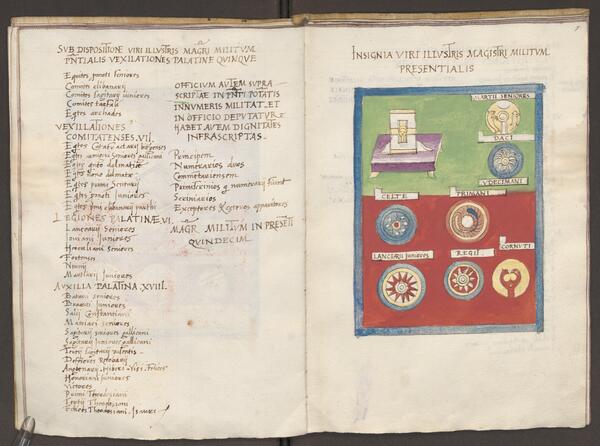 SVB DISPOSITIONE VIRI ILLVSTRIS MAGRI MILITVM
PNTIALIS VEXILATIONES PALATINE QVINQVE
Equites seniores
Comites clibanarii
Comites sagitarii iuniores
Comites taifali
Eqtes archades
VEXILLATIONES
COMITATENSES. VII.
Eqtes
Eqtes seniores gallicani
Eqtes dalmatice
Eqtes dalmatice
Eqtes primi Scutarii
Eqtes Juniores
Eqtes primi clibanarii parthi
LEGIONES PALATINÆ VI.
Lanciarii Seniores
Joviani Juniores
Herculiani Seniores
Fortenses
Nervii
Martiarii Juniores
AVXILIA PALATINA. XVIII.
Batavi seniores
Juniores
Salii Constantiani
Matiaci seniores
Sagitarii seniores gallicani
Sagitarii Juniores gallicani
Tertii sagitarii valentis
Defensores
Felices
Honoriani Juniores
Victores
Primi Theodosiani
Tertii Theodosiani
Felices Theodosiani. Isauri
OFFICIVM AVTEM SVPRA
SCRIPTAE IN PNTI POTATIS
INNVMERIS MILITAT. ET
IN OFFICIO DEPVTATVR
HABET AVTEM DIGNITATES
INFRASCRIPTAS.
Principem
Numerarios duos
Commentariensem
Scriniarios
Exceptores apparitores
MAGR MILITVM IN PRESETI
QVINDECIM
INSIGNIA VIRI ILLVSTRIS MAGISTRI MILITVM
PRESENTIALIS
MARTII SENIORES
DACI
VNDECIMANI
CELTE
PRIMANI
LANCEARII Juniores
REGII
CORNVTI